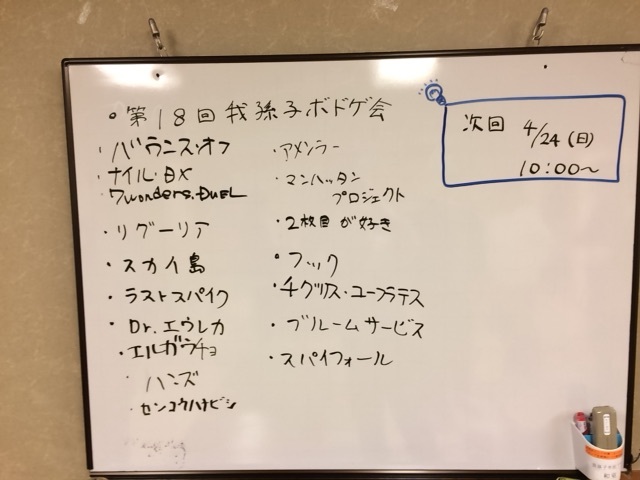 。第18回我孫子ボドゲ会
・バウンス・オフ
・ナイル・DX
・7wonders.DUEL
・リグーリア
・スカイ島
・ラストスパイク
・Dr.エウレカ
・エルガウチョ
・ハンズ
・センコウハナビシ
・アメンラー
・マンハッタン
プロジェクト
・2枚目が好き
・フック
・チグリス・ユーフラテス
・ブルームサービス
・スパイフォール
次回 4/24(日)
10:00〜